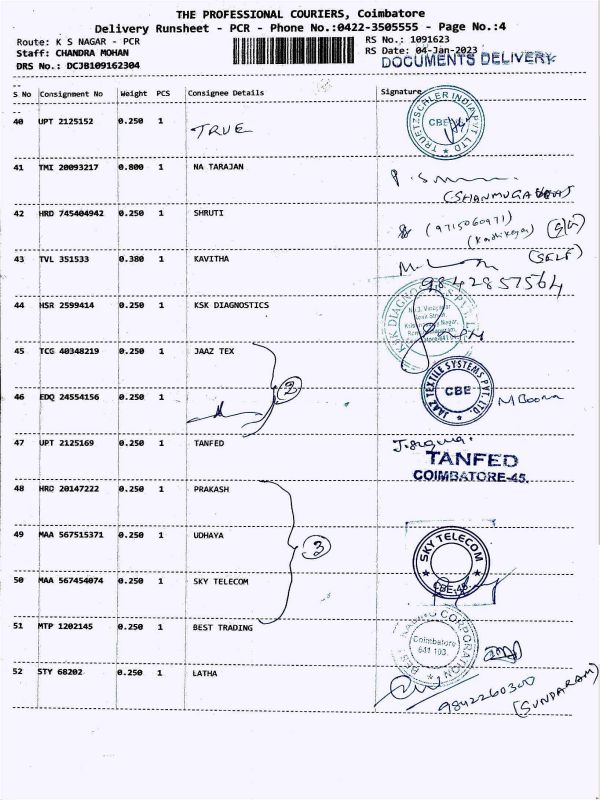 THE PROFESSIONAL COURIERS, Coimbatore
Delivery Runsheet - PCR - Phone No.:0422-3505555 - Page No.:4
Route: K S NAGAR - PCR
RS No.: 1091623
Staff: CHANDRA MOHAN
RS Date: 04-Jan-2023
DRS No.: DCJB109162304
DOCUMENTS DELIVERY
S No Consignment No Weight PCS Consignee Details Signature
40 UPT 2125152 0.250 1 TRUE
TRUETZSCHLER INDIA PVT LTD
CBE
41 TMI 20093217 0.800 1 NA TARAJAN
42 HRD 745404942 0.250 1 SHRUTI
(9715060971)
43 TVL 351533 0.380 1 KAVITHA
(SELF)
9842857564
44 HSR 2599414 0.250 1 KSK DIAGNOSTICS
KSK DIAGNO
45 TCG 40348219 0.250 1 JAAZ TEX
46 EDQ 24554156 0.250 1
2
JAAZ TEXTILE SYSTEMS PVT. LTD.
CBE
47 UPT 2125169 0.250 1 TANFED
TANFED
COIMBATORE-45.
48 HRD 20147222 0.250 1 PRAKASH
49 MAA 567515371 0.250 1 UDHAYA
3
50 MAA 567454074 0.250 1 SKY TELECOM
SKY TELECOM
CBE-45.
51 MTP 1202145 0.250 1 BEST TRADING
CORPORATION
Coimbatore
641 103.
52 STY 68202 0.250 1 LATHA
9842260300
(SUNDARAM)